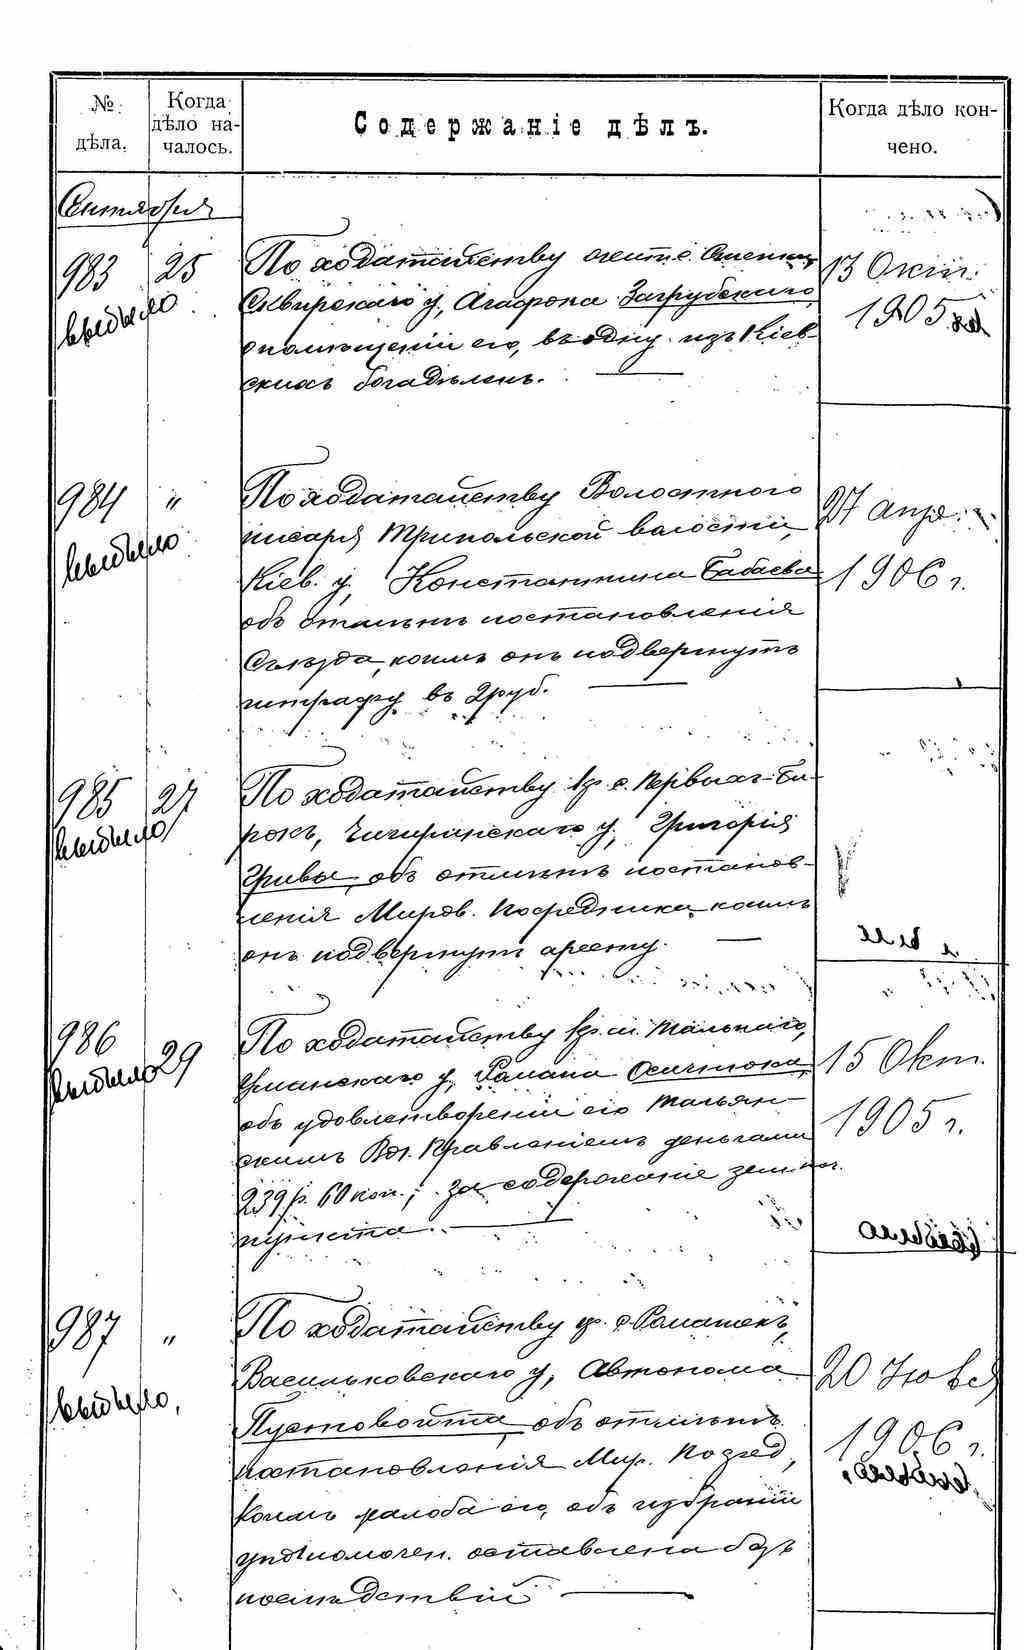 № дѣла.
Когда дѣло на-
чалось.
Содержаніе дѣлъ.
Когда дѣло кон-
чено.
Сентября
983 25 По ходатайству жит. с.
выбыло
Сквирскаго у, Агафона Загрубскаго,
о помѣщеніи его, въ одну изъ Кіев-
скихъ богадѣленъ.
13 Окт.
1905
984 " По ходатайству Волостного
выбыло
писаря Трипольской волости,
Кіев. у, Константина Бабаева
объ отмѣнѣ постановленія
Съѣзда, коимъ онъ подвергнутъ
штрафу въ 2 руб.
27 апр.
1906 г.
985 27 По ходатайству кр. с. Первыхъ-Би-
выбыло
рокъ, Чигиринскаго у, Григорія
Гривы, объ отмѣнѣ постанов-
ленія Миров. Посредника, коимъ
онъ подвергнутъ аресту.
986 29 По ходатайству кр. м. Тальнаго,
выбыло
Уманскаго у, Романа Осичнюка,
объ удовлетвореніи его Тальян-
скимъ Вол. Правленіемъ деньгами
239 р. 60 коп., за содержаніе земск.
пункта.
15 Окт.
1905 г.
987 " По ходатайству кр. с. Ромашекъ,
выбыло,
Васильковскаго у, Автонома
Пустовойта, объ отмѣнѣ
постановленія Мир. Посред,
коимъ жалоба его, объ избраніи
уполномочен. оставлена безъ
послѣдствій
20
1906 г.